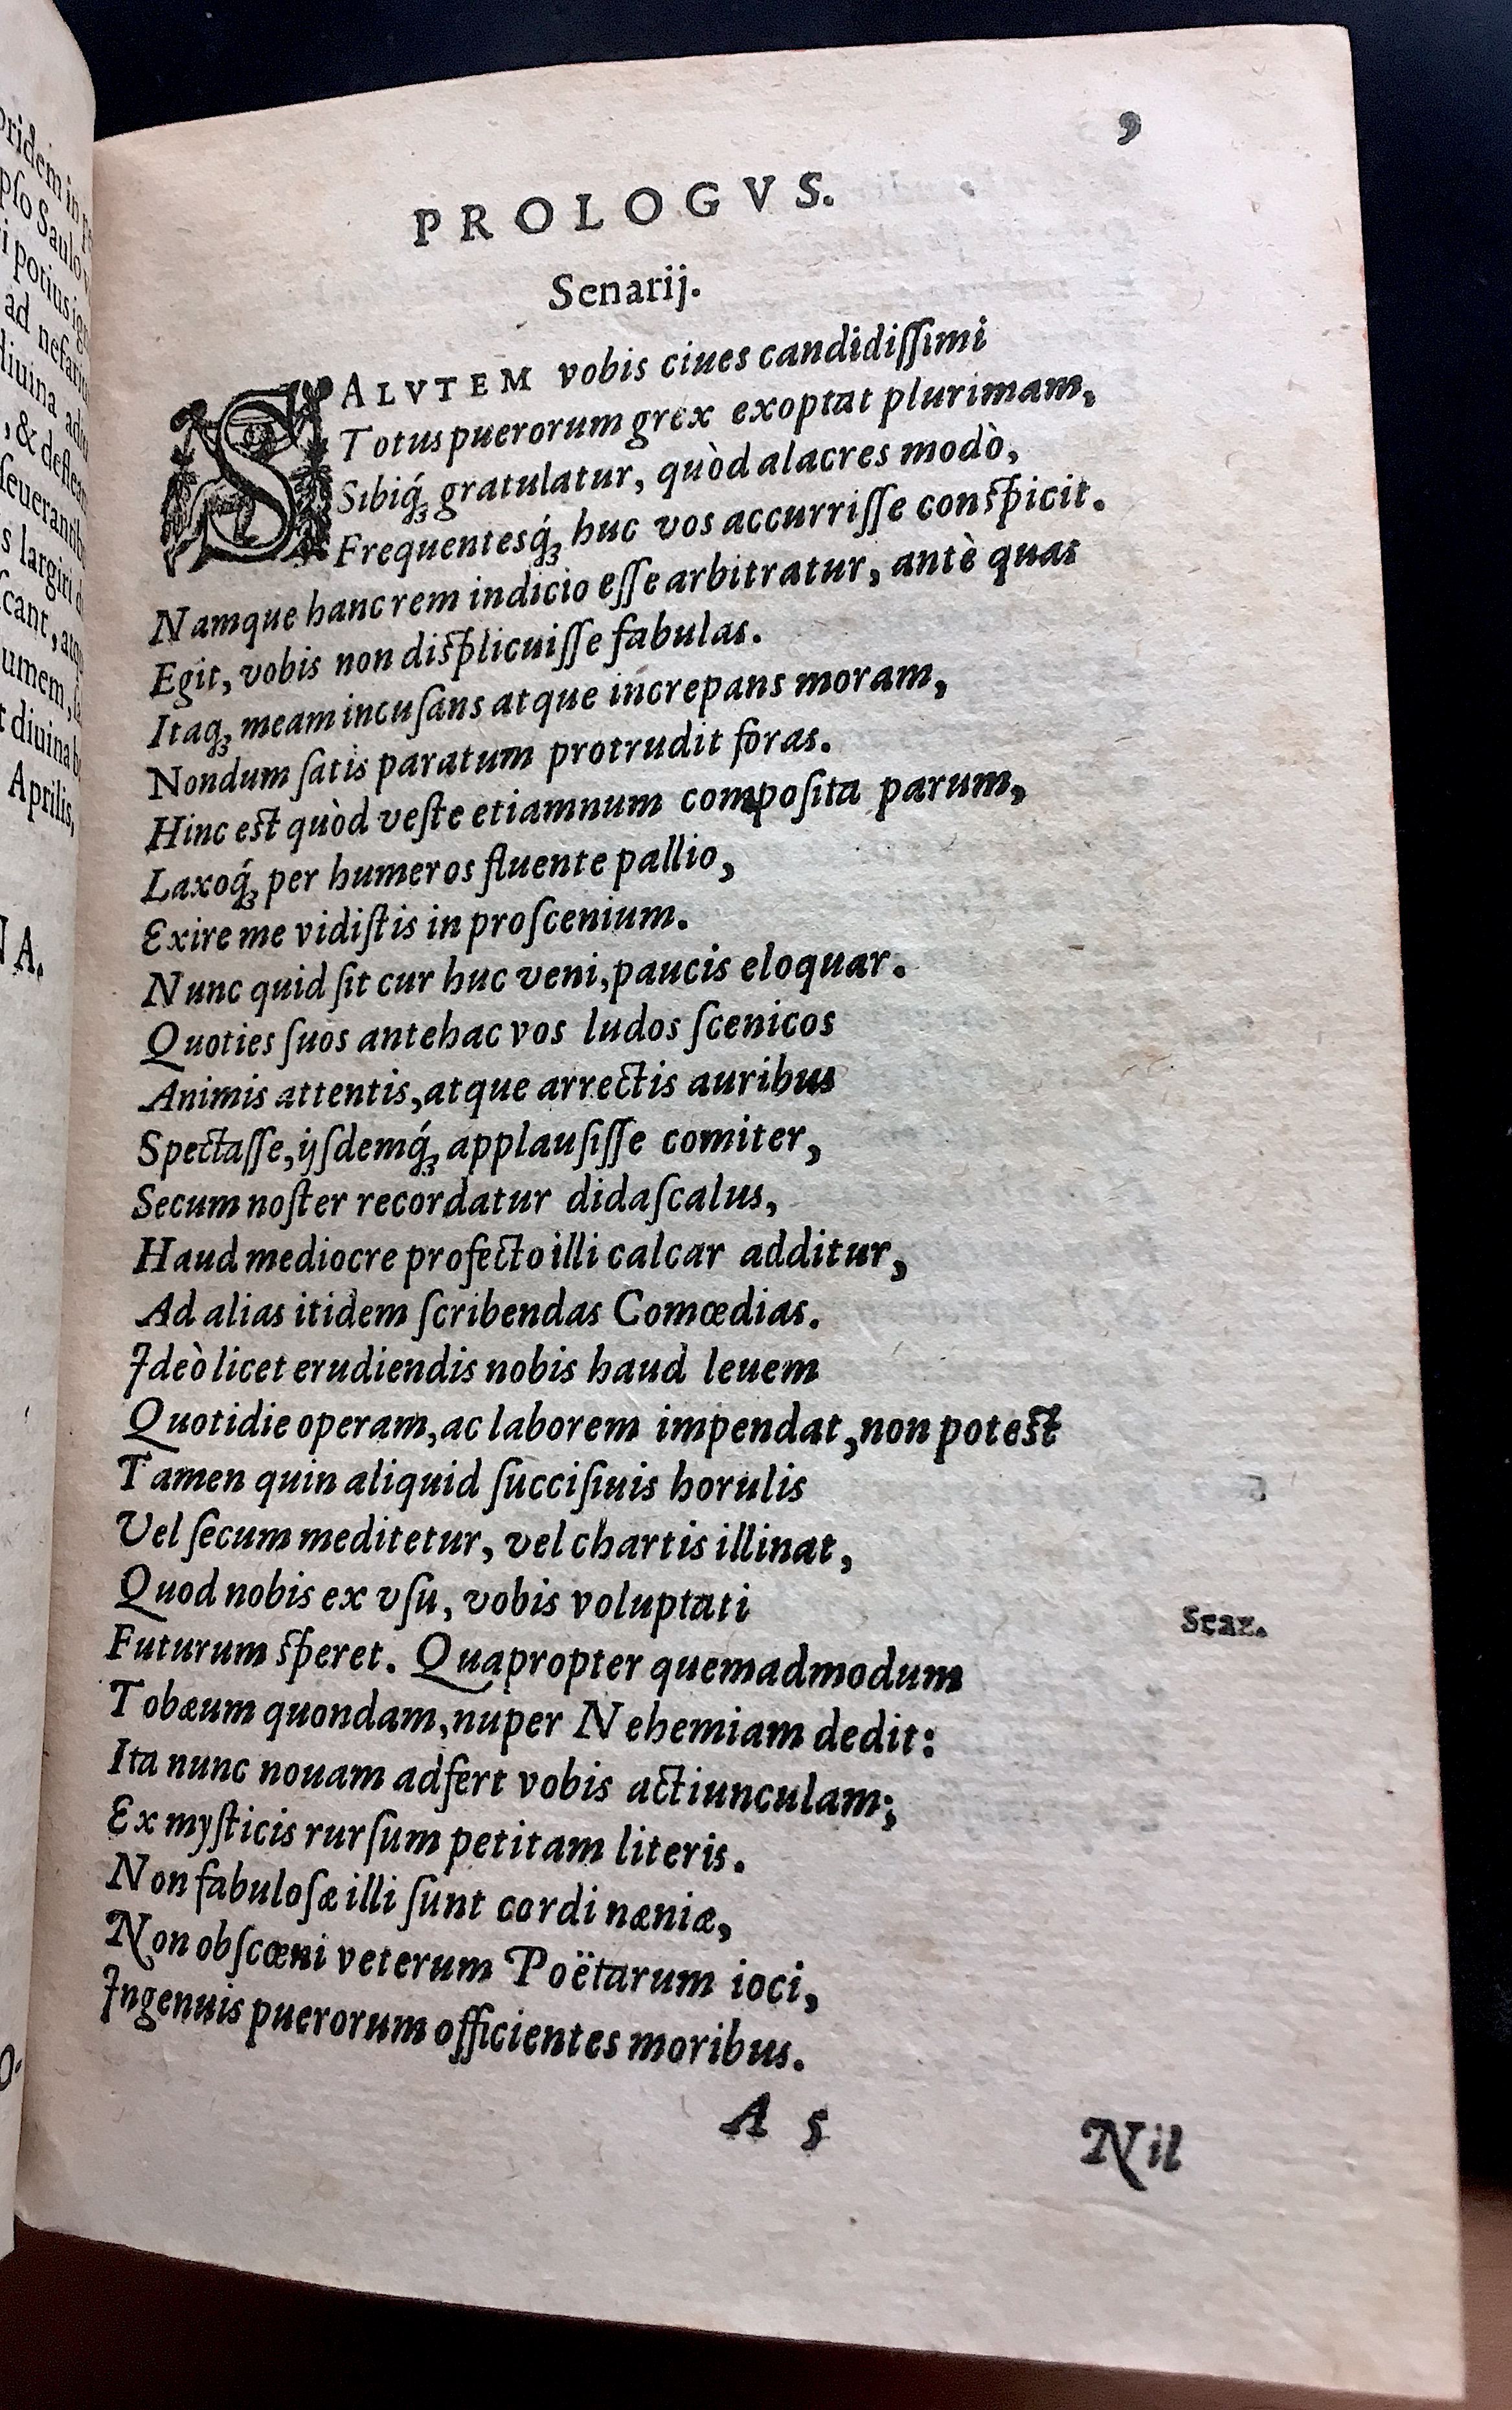 9
PROLOGVS.
Senarij.
SALVTEM vobis ciues candidißimi
Totus puerorum grex exoptat plurimam,
Sibiq́ꝫ gratulatur, quòd alacres modò,
Frequentesq́ꝫ huc vos accurriſſe conſpicit.
Namque hanc rem indicio eſſe arbitratur, antè quas
Egit, vobis non diſplicuiſſe fabulas.
Itaqꝫ meam incuſans atque increpans moram,
Nondum ſatis paratum protrudit foras.
Hinc eſt quòd veſte etiamnum compoſita parum,
Laxoq́ꝫ per humeros fluente pallio,
Exire me vidiſtis in proſcenium.
Nunc quid ſit cur huc veni, paucis eloquar.
Quoties ſuos antehac vos ludos ſcenicos
Animis attentis, atque arrectis auribus
Spectaſſe, ijſdemq́ꝫ applauſiſſe comiter,
Secum noſter recordatur didaſcalus,
Haud mediocre profecto illi calcar additur,
Ad alias itidem ſcribendas Comœdias.
Ideò licet erudiendis nobis haud leuem
Quotidie operam, ac laborem impendat, non poteſt
Tamen quin aliquid ſucciſiuis horulis
Vel ſecum meditetur, vel chartis illinat,
Quod nobis ex vſu, vobis voluptati
Futurum ſperet. Quapropter quemadmodum
Tobæum quondam, nuper Nehemiam dedit:
Ita nunc nouam adfert vobis actiunculam;
Ex myſticis rurſum petitam literis.
Non fabuloſæ illi ſunt cordi næniæ,
Non obſcœni veterum Poëtarum ioci,
Ingenuis puerorum officientes moribus.
A 5
Nil